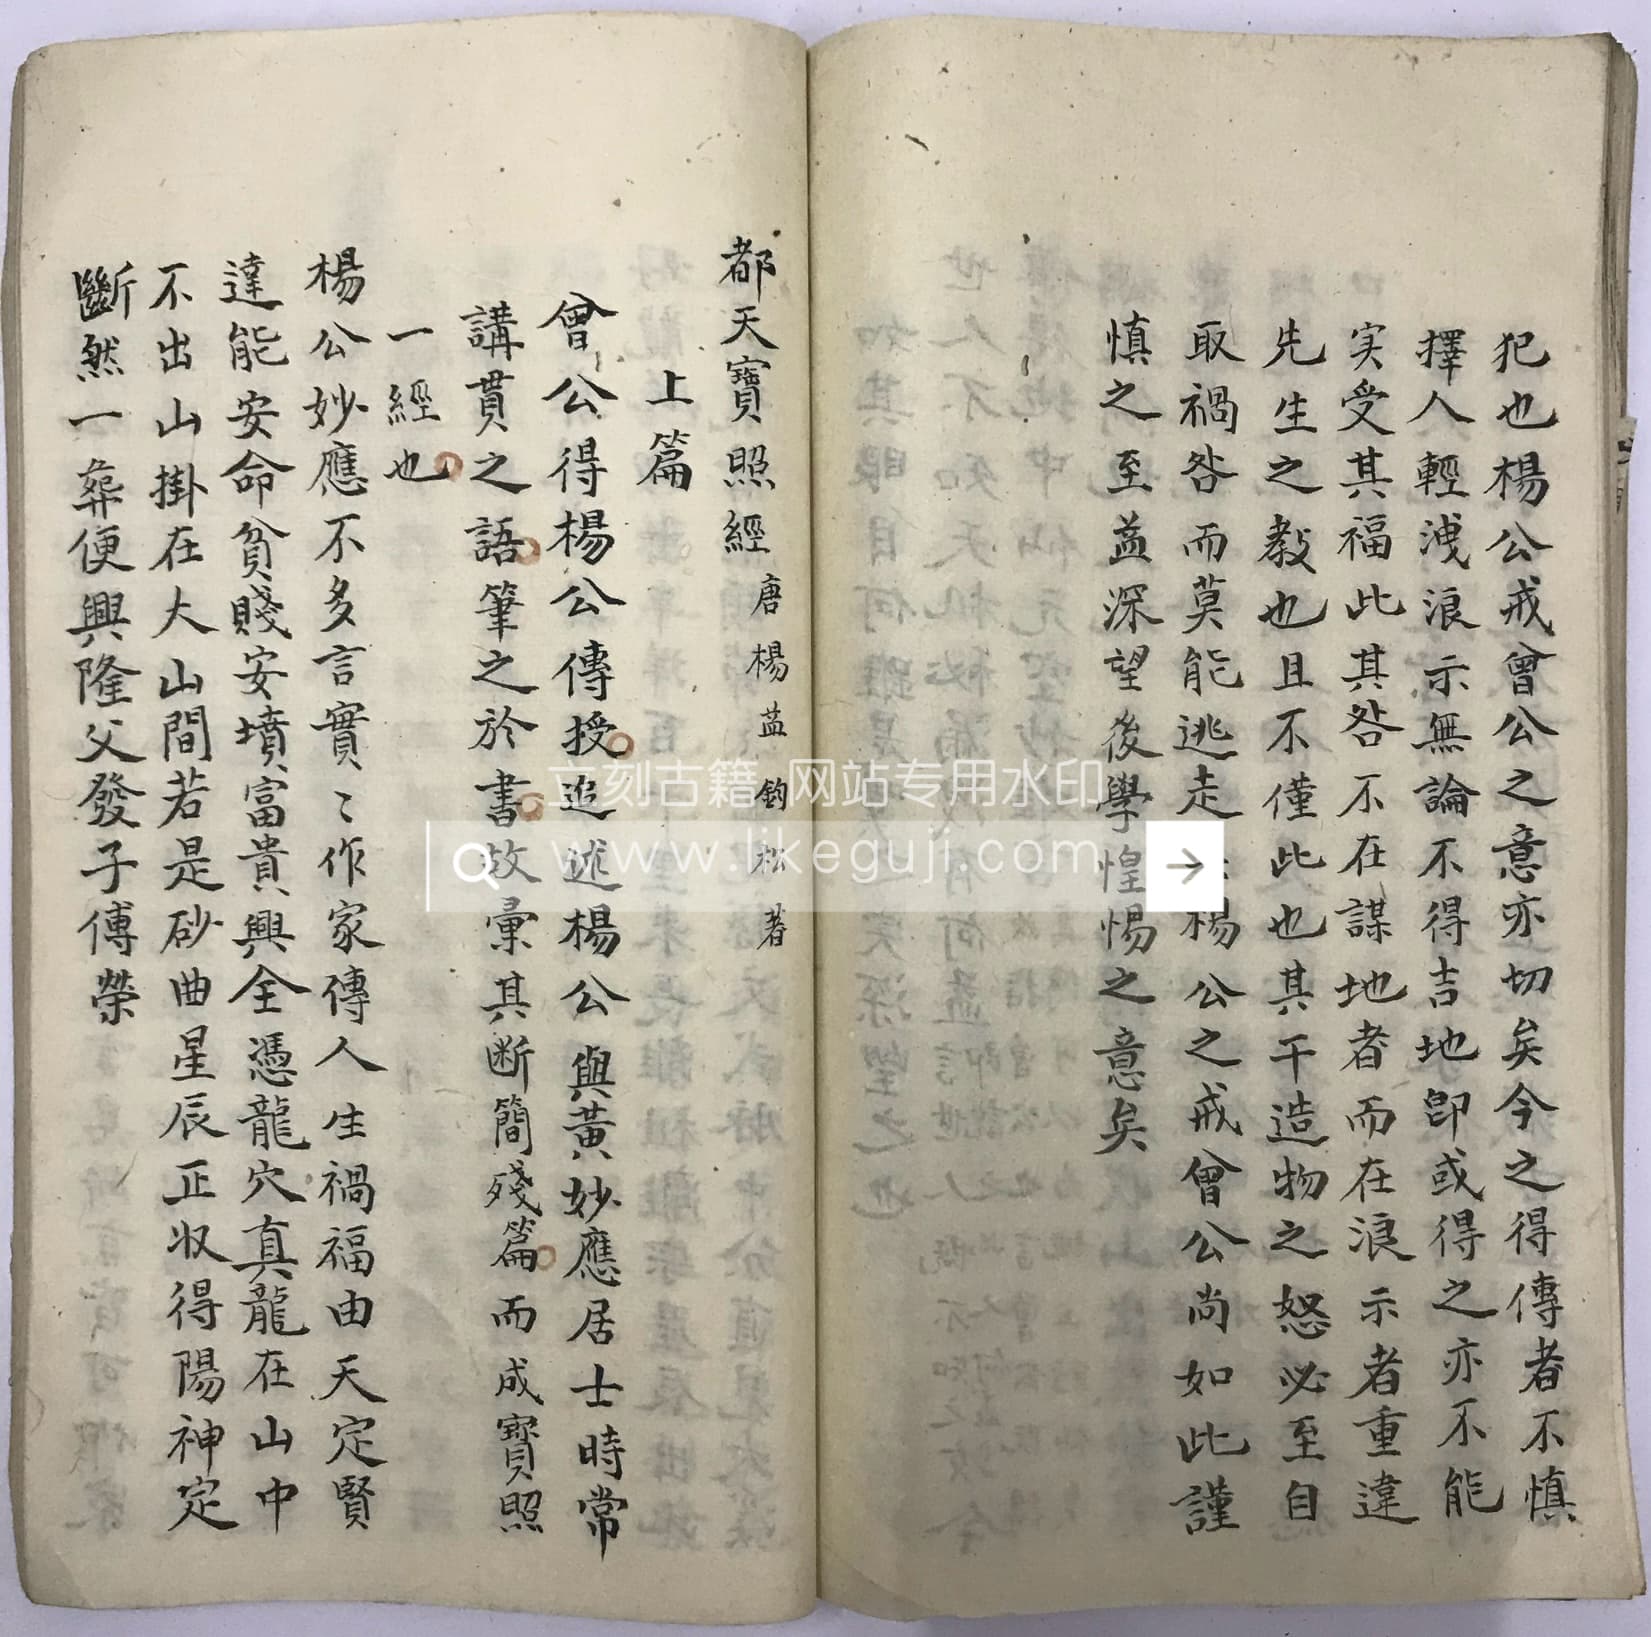 犯也楊公戒曾公之意亦切矣今之得傳者不慎
擇人輕洩浪示無論不得吉地卽或得之亦不能
実受其福此其咎不在謀地者而在浪示者重違
先生之教也且不僅此也其干造物之怒必至自
取禍咎而莫能逃走楊公之戒曾公尚如此謹
慎之至益深望後學惶惕之意矣
都天寶照經唐楊益鈞松著
上篇
曾公得楊公傳授追述楊公與黃妙應居士時常
講貫之語筆之於書故彙其断簡殘篇而成寶照
一經也
楊公妙應不多言實〻作家傳人生禍福由天定賢
達能安命貧賤安墳富貴興全憑龍穴真龍在山中
不出山掛在大山間若是砂曲星辰正収得陽神定
斷然一葬便興隆父發子傳榮
立刻古籍 网站专用水印
www.likeguji.com